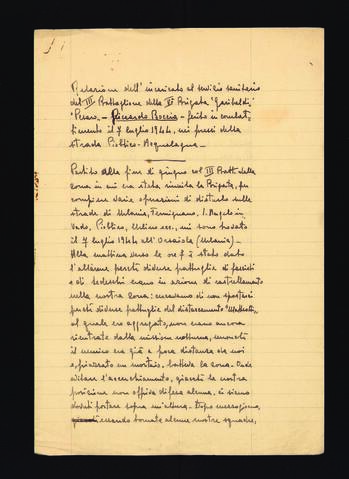 Relazione dell'incaricato al servizio sanitario
del III Battaglione della V Brigata "Garibaldi,,
Pesaro - Riccardo Boccia - ferito in combat,
timento il 7 luglio 1944, nei pressi della
strada Piobbico-Acqualagna -
Partito alla fine di giugno col III Batt. della
zona in cui era stata riunita la Brigata, per
compiere varie operazioni di disturbo sulle
strade di Urbania, Fermignano, S. Angelo in
Vado, Piobbico, Urbino ecc., mi sono trovato
il 7 luglio 1944 all'Orsaiola (Urbania) -
Alla mattina verso le ore 7 è stato dato
l'allarme perchè diverse pattuglie di fascisti
e di tedeschi erano in azione di rastrellamento
nella nostra zona: cercavamo di non spostarci
perchè diverse pattuglie del distaccamento "Matteotti,,
al quale ero aggregato, non erano ancora
rientrate dalla missione notturna, mentre
il nemico era già a poca distanza da noi
e, piazzato un mortaio, batteva la zona. Onde
evitare l'accerchiamento, giacchè la nostra
posizione non offriva difesa alcuna, ci siamo
dovuti portare sopra un'altura. Dopo mezzogiorno,
essendo tornate alcune nostre squadre,